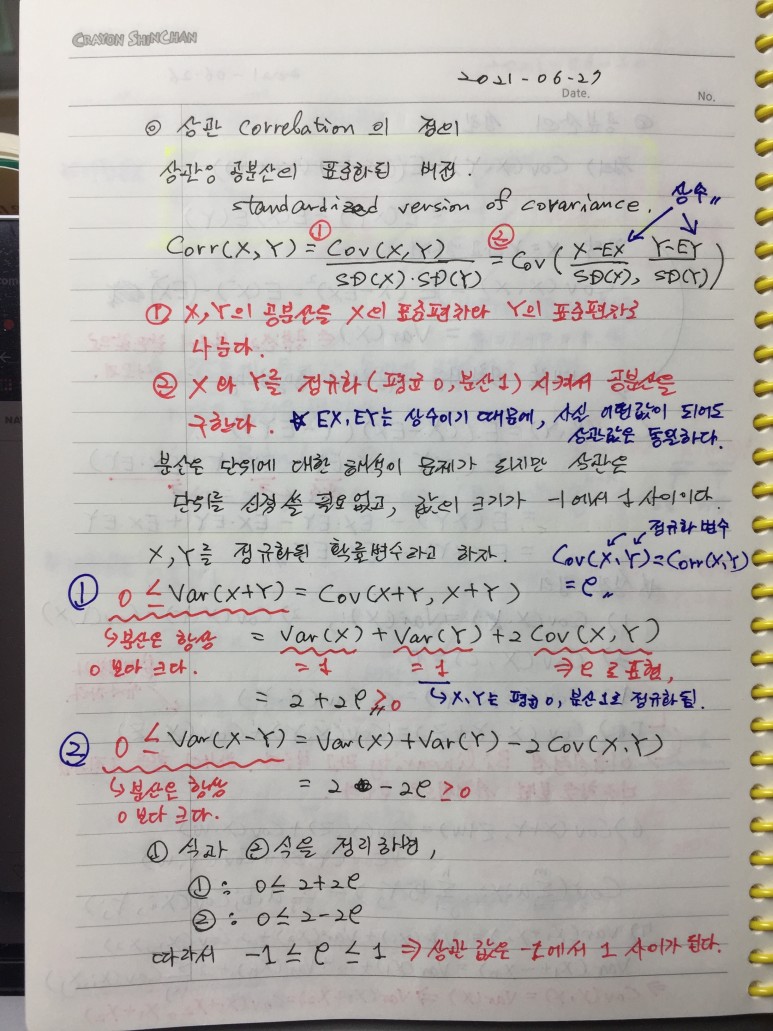 CRAYON SHINCHAN
2021-06-27
Date.
No.
◎ 상관 correlation 의 정의
상관은 공분산의 표준화된 버전.
standardized version of covariance.
상수〃
Corr(X,Y) = ① Cov(X,Y) / SD(X)·SD(Y) = ② Cov( X-EX / SD(X), Y-EY / SD(Y) )
① X,Y의 공분산을 X의 표준편차와 Y의 표준편차로
나눈다.
② X와 Y를 정규화(평균 0, 분산 1) 시켜서 공분산을
구한다. ★ EX, EY는 상수이기 때문에, 사실 어떤값이 되어도
상관값은 동일하다.
분산은 단위에 대한 해석이 문제가 되지만 상관은
단위를 신경 쓸 필요없고, 값의 크기가 -1에서 1 사이이다.
정규화 변수
X,Y를 정규화된 확률변수라고 하자. Cov(X,Y)=Corr(X,Y)
= ρ〃
① 0 ≤ Var(X+Y) = Cov(X+Y, X+Y)
↳분산은 항상 = Var(X) + Var(Y) + 2 Cov(X,Y)
0 보다 크다. = 1 = 1 ⇒ ρ로 표현,
= 2 + 2ρ〃 ≥ 0 ↳ X,Y는 평균 0, 분산 1로 정규화됨.
② 0 ≤ Var(X-Y) = Var(X) + Var(Y) - 2 Cov(X,Y)
↳분산은 항상 = 2 - 2ρ ≥ 0
0 보다 크다.
① 식과 ② 식을 정리하면,
① : 0 ≤ 2+2ρ
② : 0 ≤ 2-2ρ
따라서 -1 ≤ ρ ≤ 1 ⇒ 상관 값은 -1에서 1 사이가 된다.